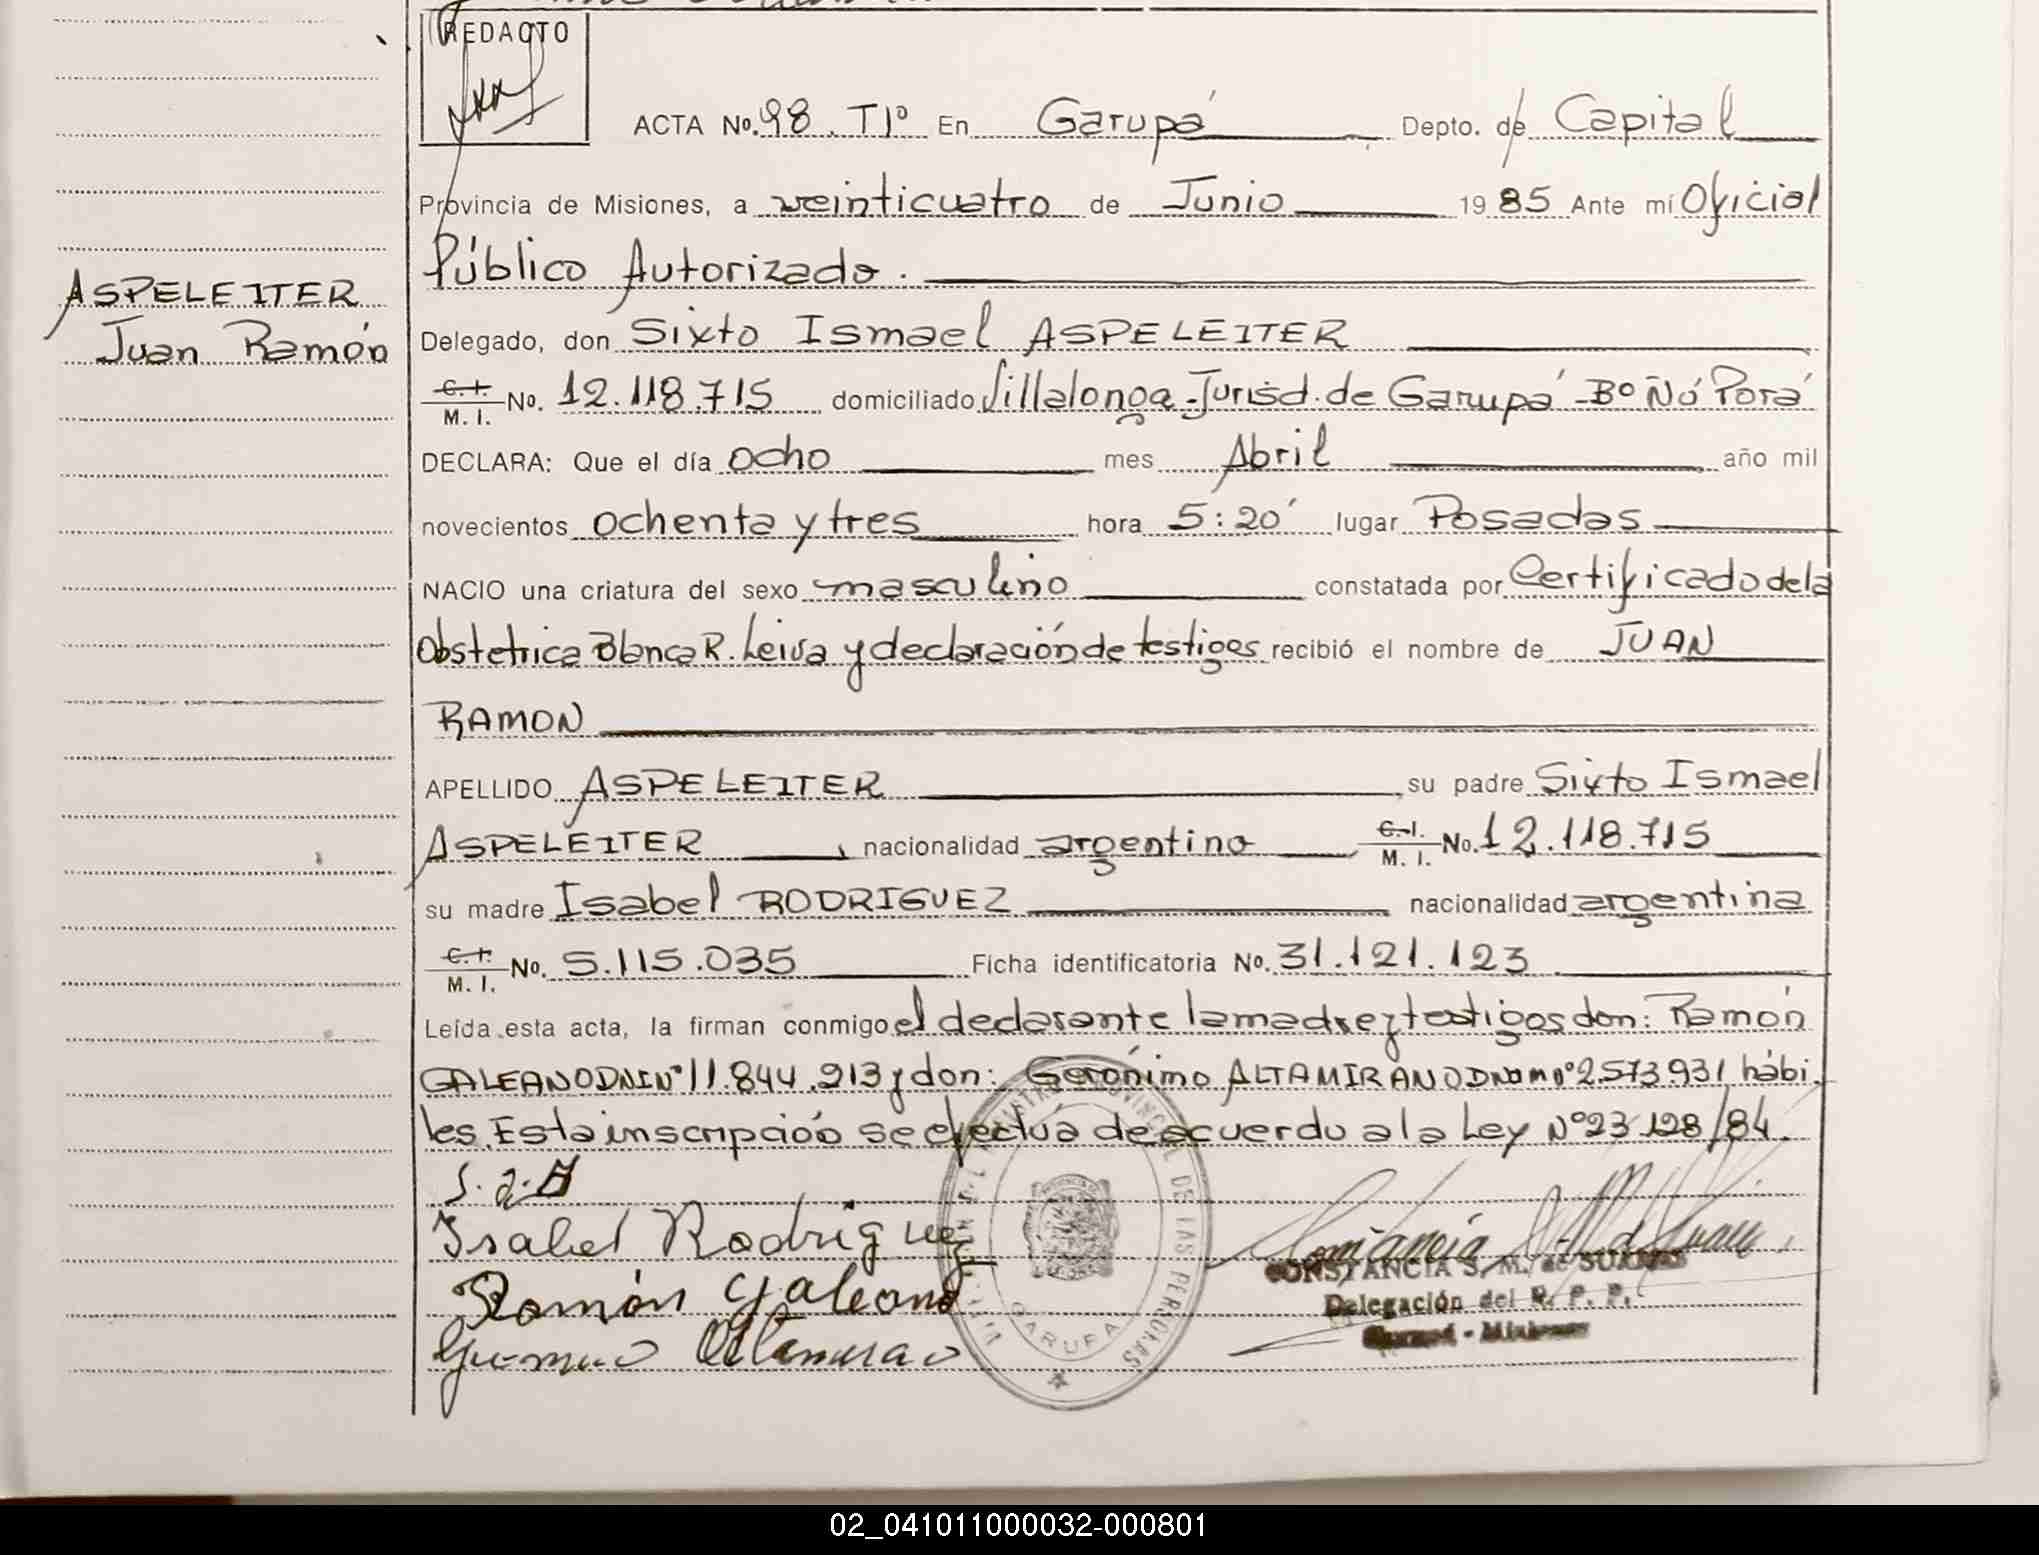 REDACTO
ACTA No. 98. Tº Iº En Garupá Depto. de Capital
Provincia de Misiones, a veinticuatro de Junio 1985 Ante mí Oficial
Público Autorizado.
ASPELEITER
Juan Ramón
Delegado, don Sixto Ismael ASPELEITER
C.I. M. I. No. 12.118.715 domiciliado Villalonga-Jurisd. de Garupá-Bº Ñú Porá
DECLARA: Que el día ocho mes Abril año mil
novecientos ochenta y tres hora 5:20´ lugar Posadas
NACIO una criatura del sexo masculino constatada por Certificado de la
Obstetrica Blanca R. Leiva y declaración de testigos recibió el nombre de JUAN
RAMON
APELLIDO ASPELEITER su padre Sixto Ismael
ASPELEITER, nacionalidad argentino C.I. M. I. No. 12.118.715
su madre Isabel RODRIGUEZ nacionalidad argentina
C.I. M. I. No. 5.115.035 Ficha identificatoria No. 31.121.123
Leída esta acta, la firman conmigo el declarante la madre y testigos don: Ramón
GALEANO DNI Nº 11.844.913 y don: Gerónimo ALTAMIRANO nº 2.573.931 hábi
les. Esta inscripción se efectúa de acuerdo a la Ley Nº 23128/84.
S. I. A
Isabel Rodriguez
Ramón Galeano
REGISTRO PROVINCIAL DE LAS PERSONAS
GARUPA
CONSTANCIA S. M. de SUAREZ
Delegación del R. P. P.
02_041011000032-000801